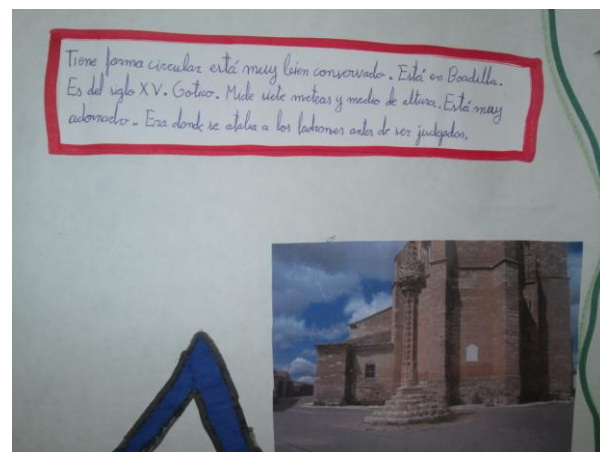 Tiene forma circular está muy bien conservado. Está en Boadilla.
Es del siglo XV. Gotico. Mide siete metros y medio de altura. Está muy
adornado. Era donde se ataba a los ladrones antes de ser juzgados.